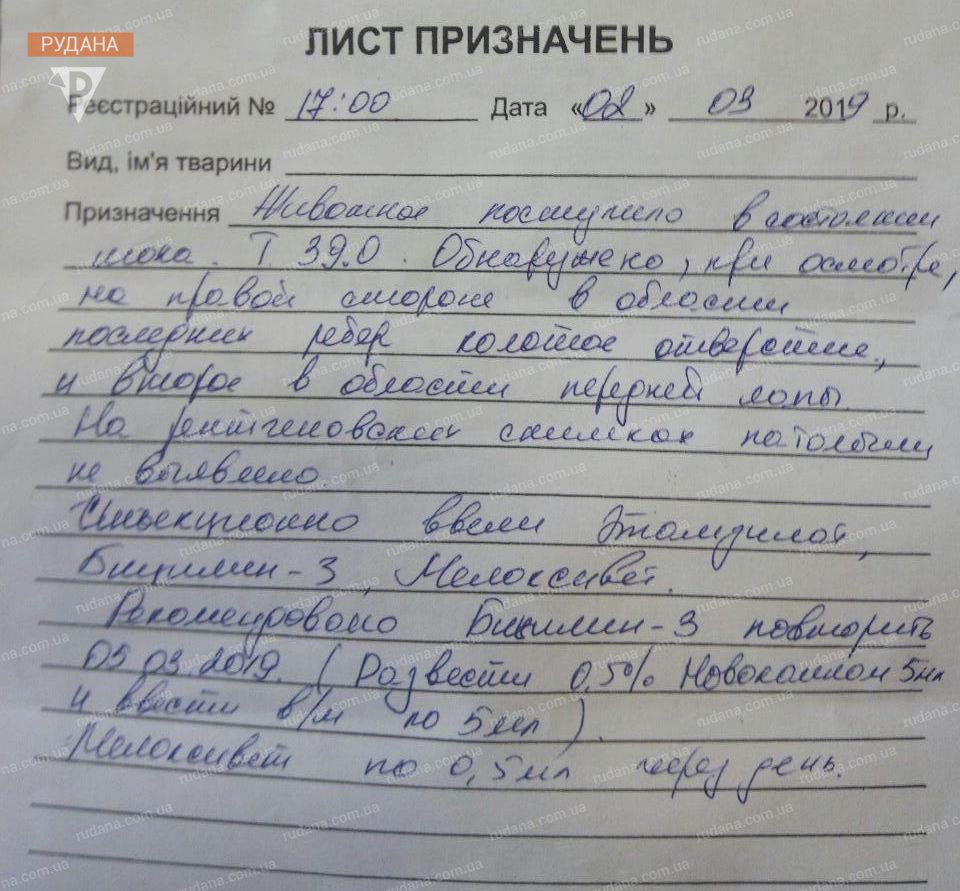 РУДАНА
ЛИСТ ПРИЗНАЧЕНЬ
Реєстраційний № 17:00 Дата «02» 03 2019 р.
Вид, ім'я тварини
Призначення Животное поступило в состоянии
шока. Т 39.0. Обнаружено, при осмотре,
на правой стороне в области
последних ребер колотое отверстие,
и второе в области передней лапы
На рентгеновских снимках патологии
не выявлено.
Инъекционно ввели Этамзилат,
Бицилин-3, Мелоксивет.
Рекомендовано Бицилин-3 повторить
05.03.2019. (Развести 0,5% Новокаином 5мл
и ввести в/м по 5мл).
Мелоксивет по 0,5мл через день.
rudana.com.ua